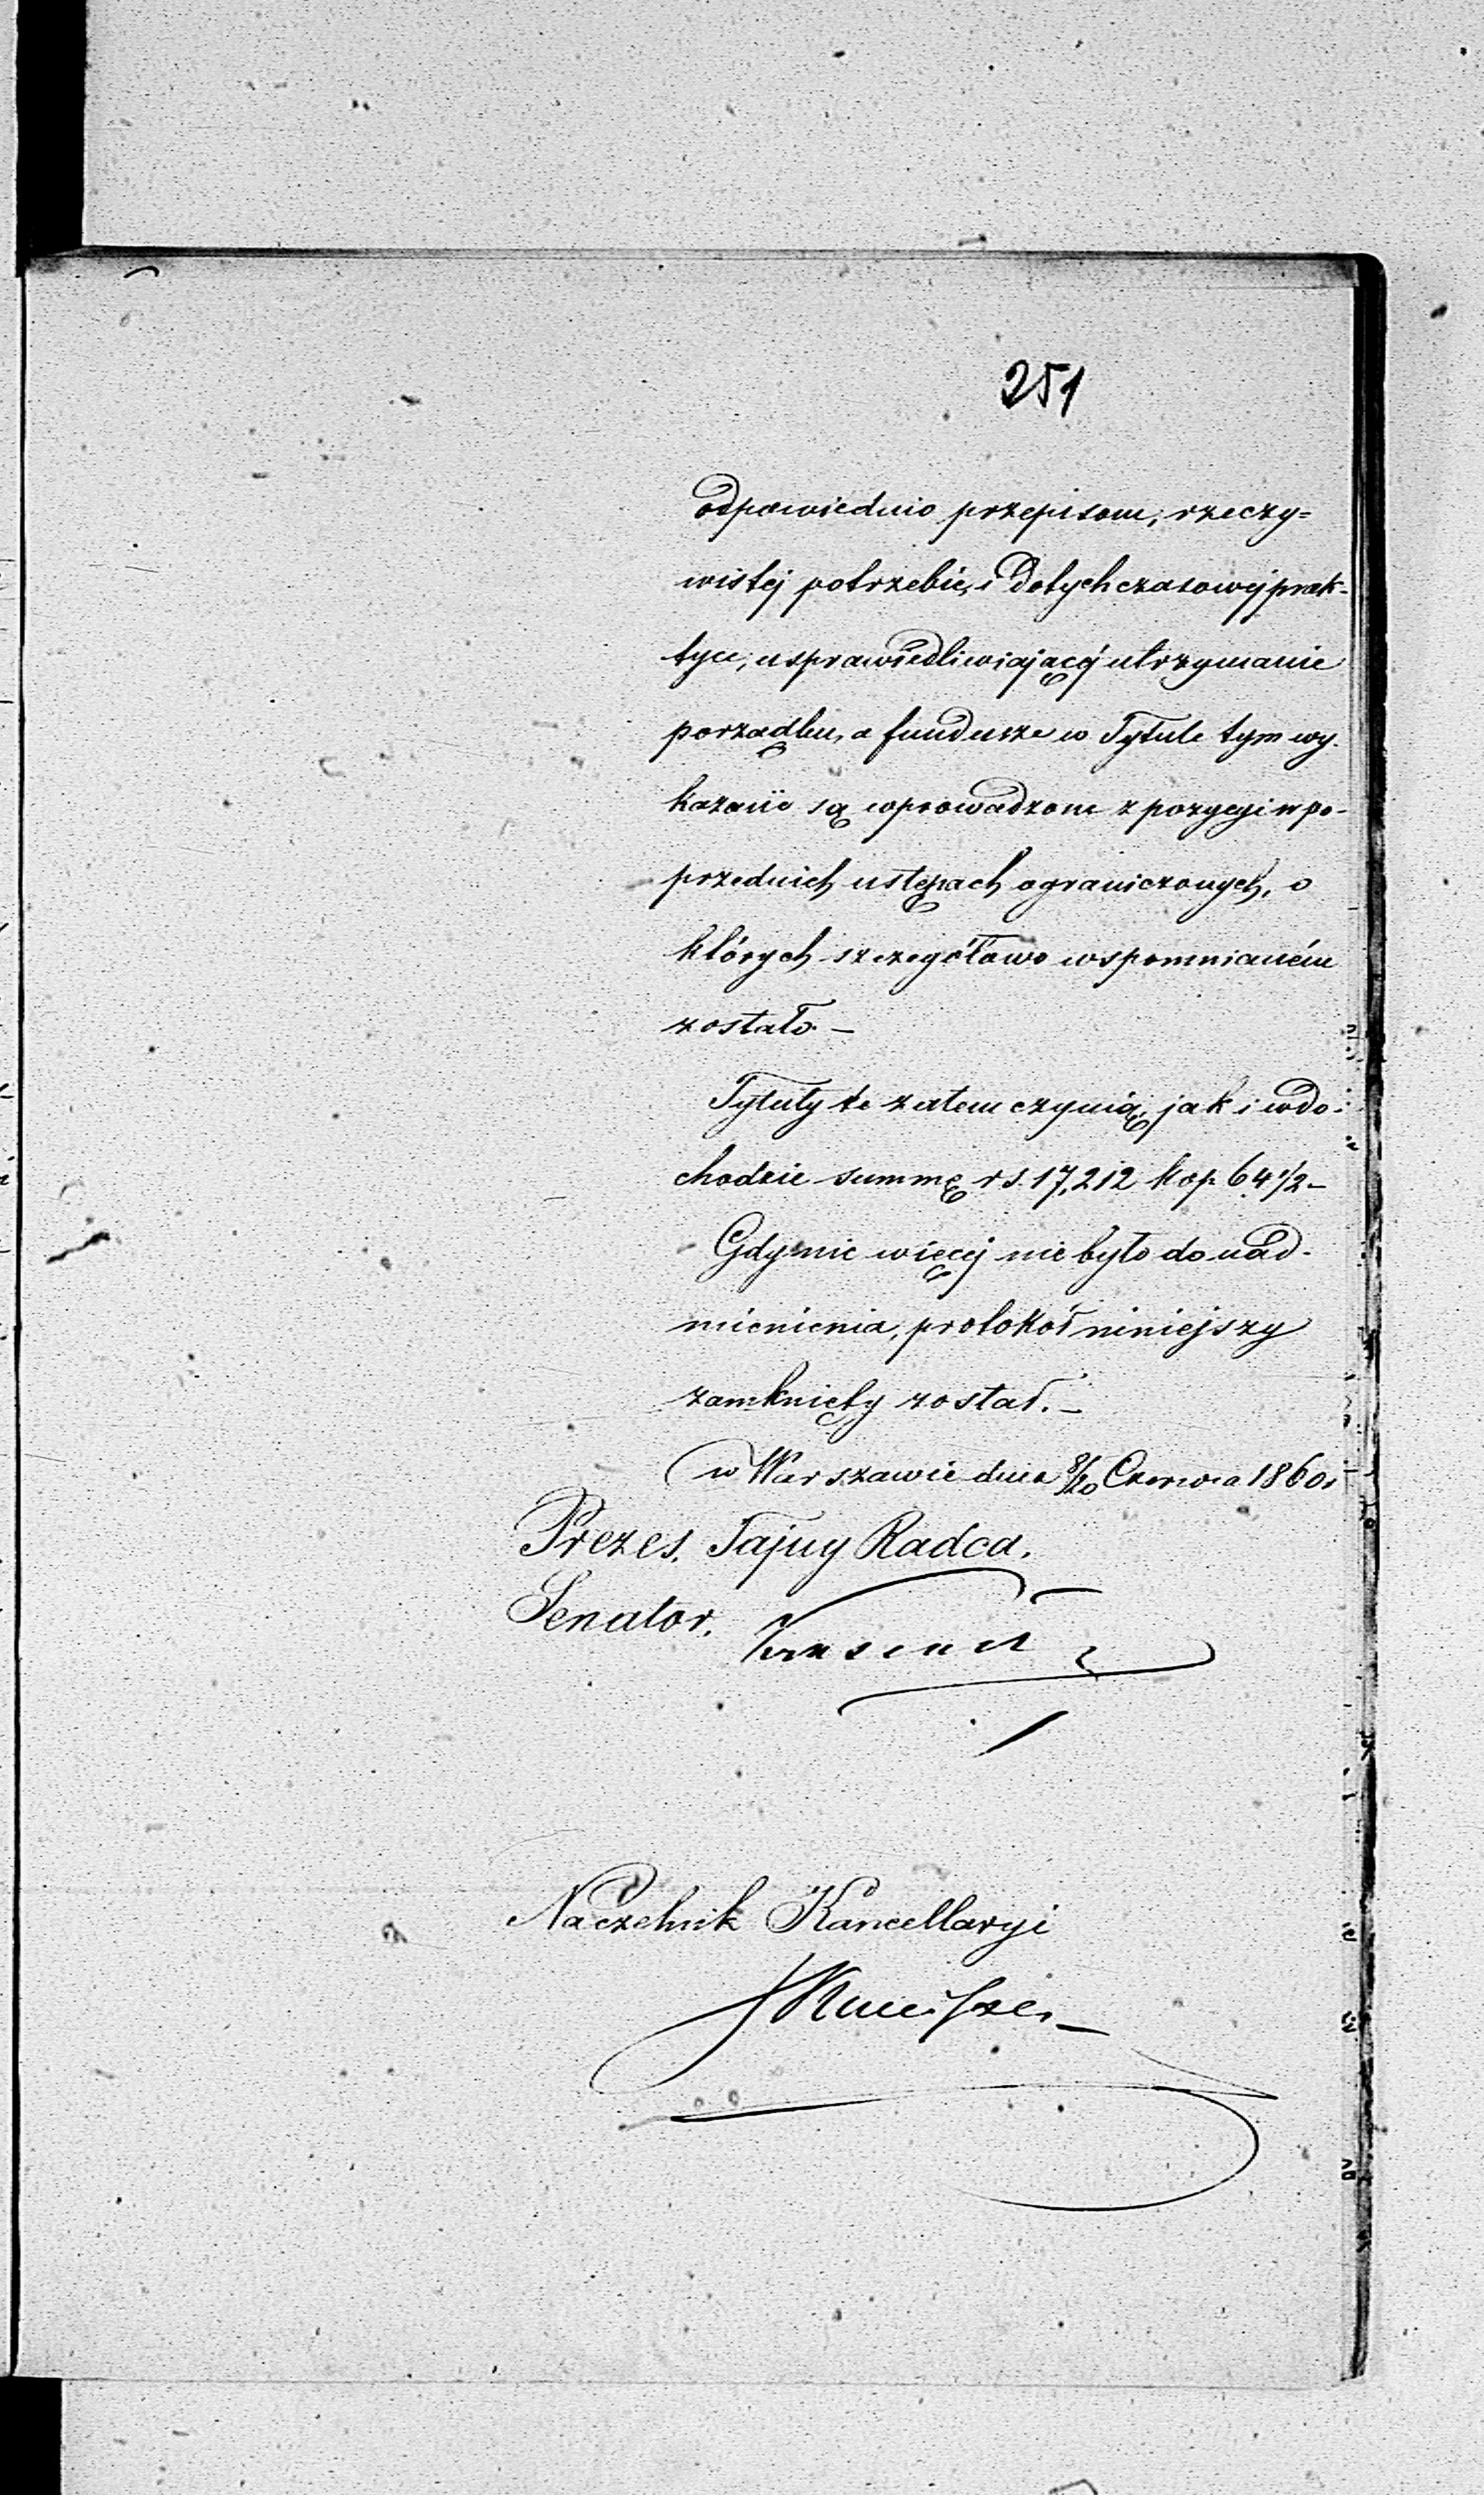 251
odpowiednio przepisom, rzeczy=
wistéj potrzebie, i dotychczasowéj prak-
tyce, usprawiedliwiającéj utrzymanie
porządku, a fundusze w Tytule tym wy-
kazane są wprowadzone z pozycyi w po-
przednich ustępach ograniczonych, o
których szczegółowo wspomnianém
zostało. —
Tytuły te zatem czynią, jak i w do-
chodzie summę rs. 17,212 kop. 64 1/2 —
Gdy nic więcéj nie było do nad-
mienienia, protokół niniejszy
zamknięty został. —
w Warszawie dnia 8/20 Czerwca 1860 r
Prezes, Tajny Radca,
Senator,
Naczelnik Kancellaryi